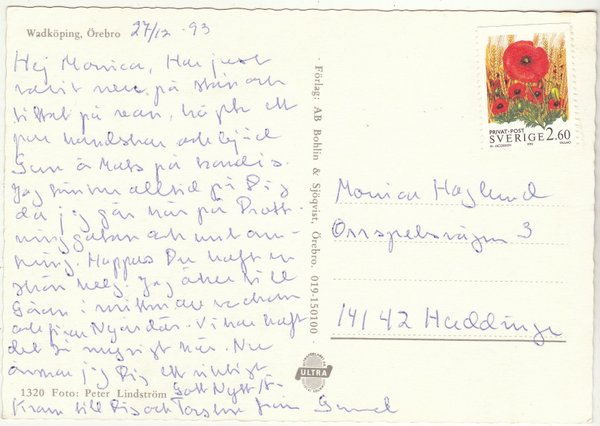 Wadköping, Örebro 27/12 -93
Hej Monica, Har just
varit nere på stan och
tittat på rean, köpte ett
par handskar och bjöd
Gun å Mats på kondis.
Jag tänker alltid på Dig
då jag går här på Drott-
ninggatan och
Hoppas Du haft en
skön helg. Jag åker till
i mitten av veckan
och firar Nyår där. Vi har haft
det så mysigt här. Nu
önskar jag Dig ett riktigt
Gott Nytt År
Kram till Dig och Torsten från Gund
1320 Foto: Peter Lindström
Förlag: AB Bohlin & Sjöqvist, Örebro. 019-150100
ULTRA
PRIVAT-POST
SVERIGE 2.60
Monica Haglund
Orrspelsvägen 3
141 42 Huddinge